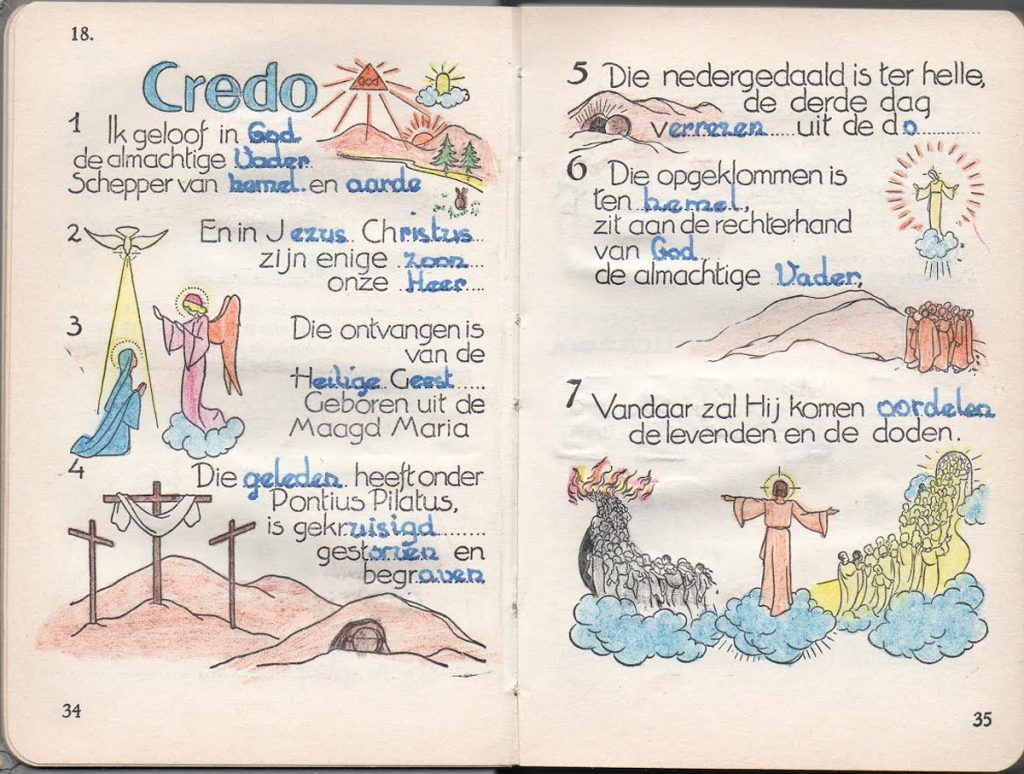 18.
Credo
God
1 Ik geloof in God
de almachtige Vader
Schepper van hemel. en aarde
2 En in Jezus Christus
zijn enige zoon
onze Heer
3 Die ontvangen is
van de
Heilige Geest
Geboren uit de
Maagd Maria
4 Die geleden heeft onder
Pontius Pilatus,
is gekruisigd
gestorven en
begraven
34
5 Die nedergedaald is ter helle,
de derde dag
verrezen uit de do
6 Die opgeklommen is
ten hemel,
zit aan de rechterhand
van God
de almachtige Vader,
7 Vandaar zal Hij komen oordelen
de levenden en de doden.
35